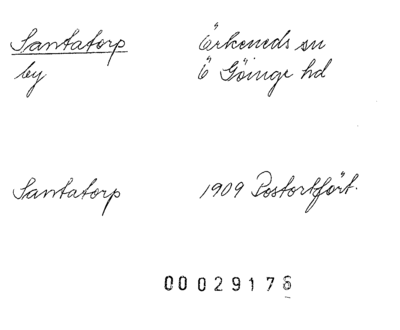 Santatorp Örkeneds sn
by Ö Göinge hd
Santatorp 1909 Postortfört.
00029178